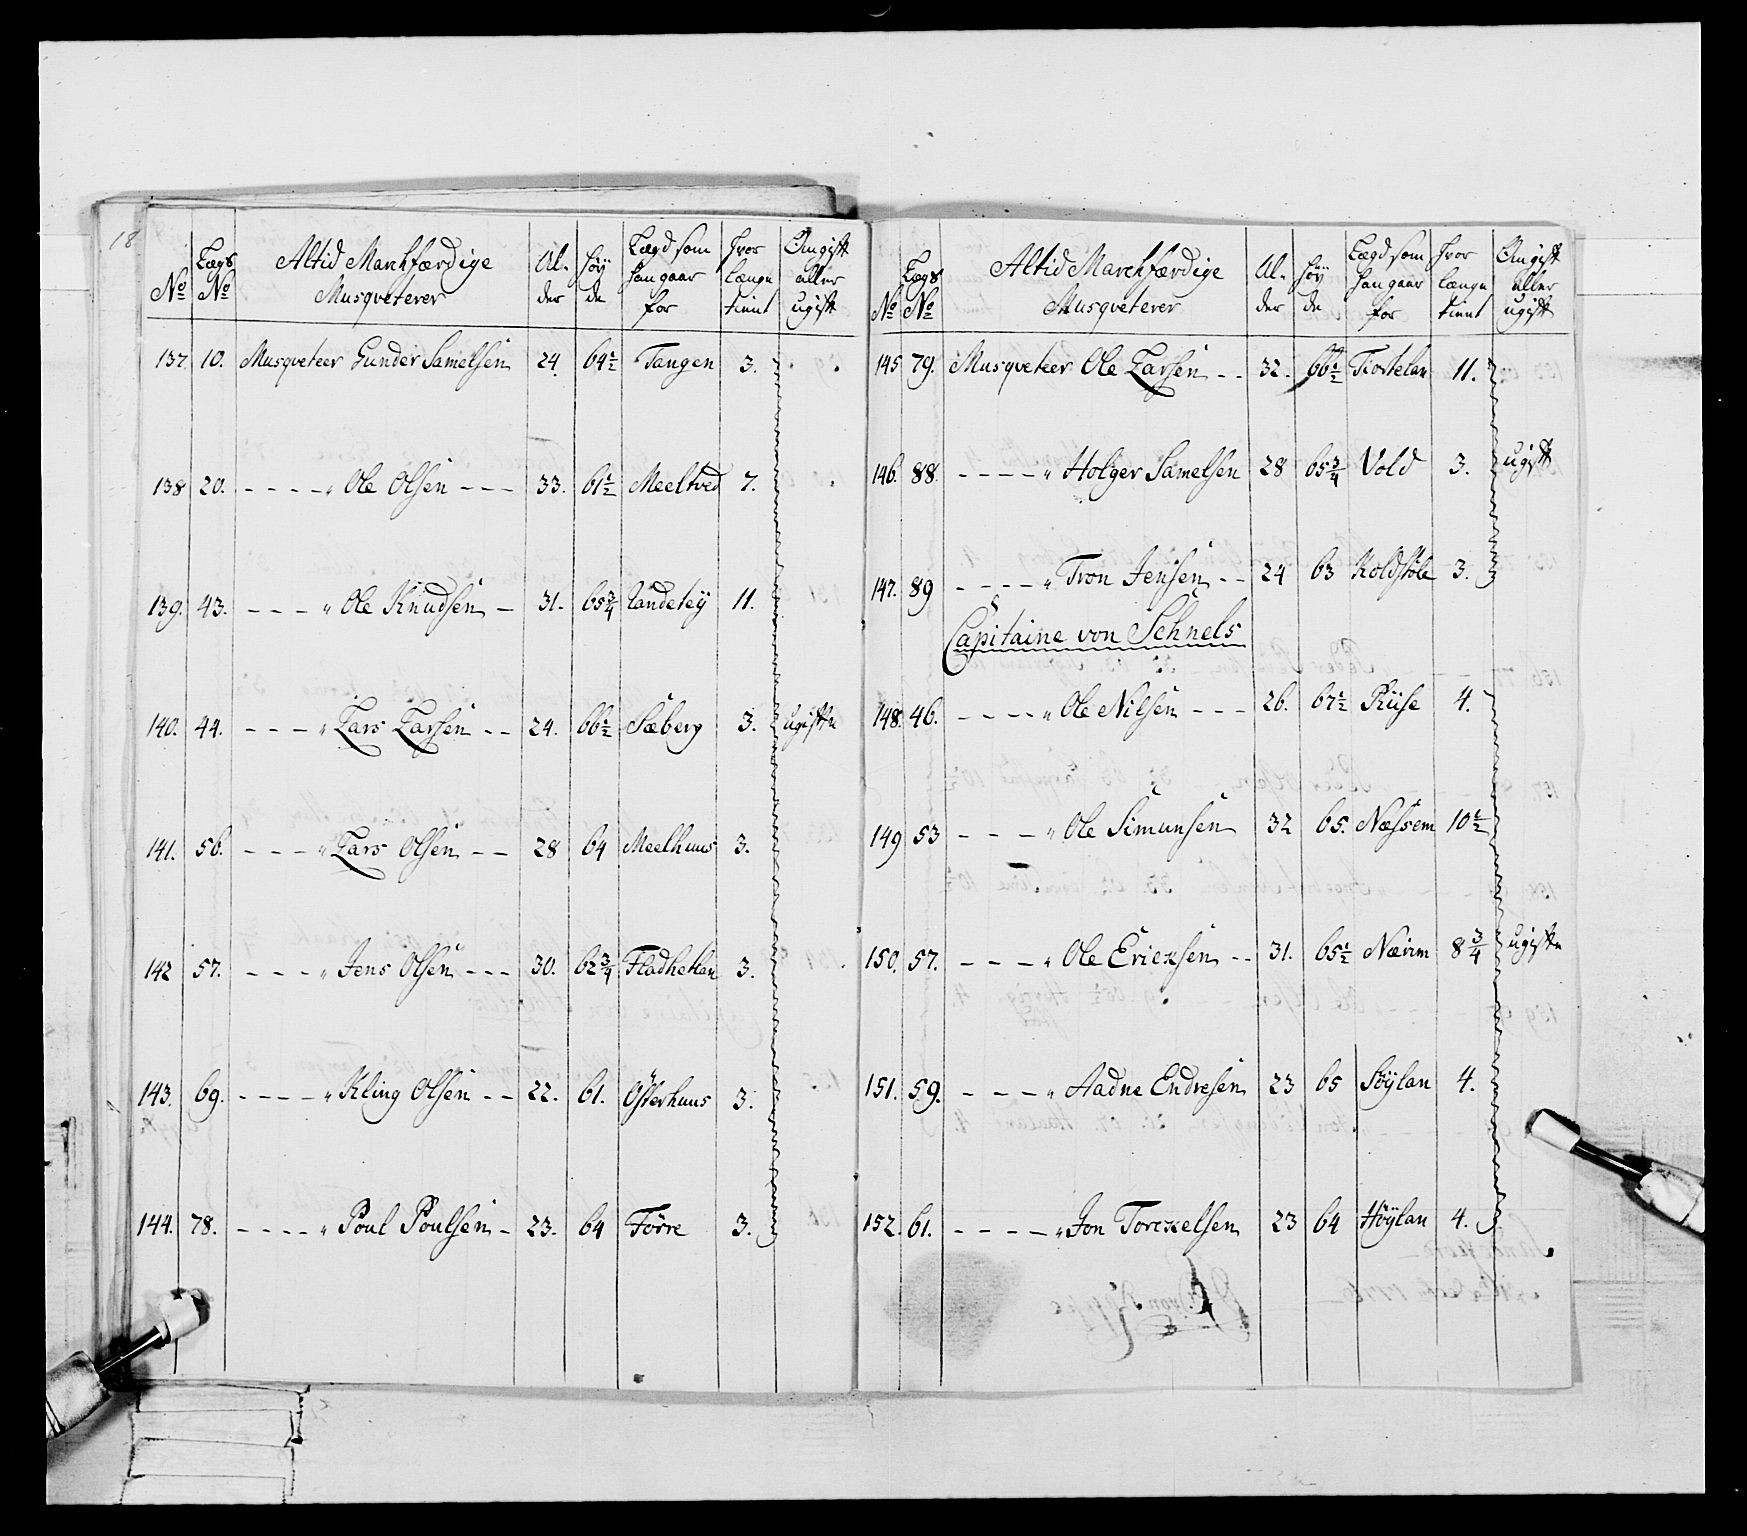 18
No Lægs No Altid Marchfærdige Musqveterer Al- der Höy de Lægd som han gaar for Hvor længe tient Om gift eller ugift
137. 10. Musqveteer Gunder Samelsen 24. 64½ Tangen 3.
138 20. - - - - „ Ole Olsen - - - 33. 61½ Meeltved 7.
139. 43. - - - „ Ole Knudsen - 31. 65¾ Landetey 11.
140. 44. - - - „ Lars Larsen - - 24. 66½ Sæberg 3. ugifte
141. 56. - - - „ Lars Olsen - - 28 64 Meelhuus 3.
142 57. - - - „ Jens Olsen - - - 30. 62¾ Fladhetlan 3.
143. 69. - - - - „ Kling Olsen - - 22. 61. Österhuus 3.
144. 78. - - - - „ Poul Poulsen - 23. 64 Förre 3.
No Lægs No Altid Marchfærdige Musqveterer Al- der Höy de Lægd som han gaar for Hvor længe tient Om gift eller ugift
145 79. Musqveteer Ole Larsen - - 32. 66½ Tiostelan 11.
146. 88. - - - - „ Holger Samelsen 28 65¾ Vold 3. ugift
147. 89 - - - - „ Tron Jensen - - 24 63 Koldstöle 3.
Capitaine von Schnels
148. 46. - - - - „ Ole Nilsen - - - 26. 67½ Riise 4.
149 53 - - - „ Ole Simunsen 32 65. Næssem 10½
150. 57. - - - „ Ole Ericksen - - 31. 65½ Nærim 8¾ ugifte
151. 59. - - - „ Aadne Endresen 23 65 Söylan 4.
152. 61. - - - - „ Jon Torckelsen 23 64 Höylan 4.